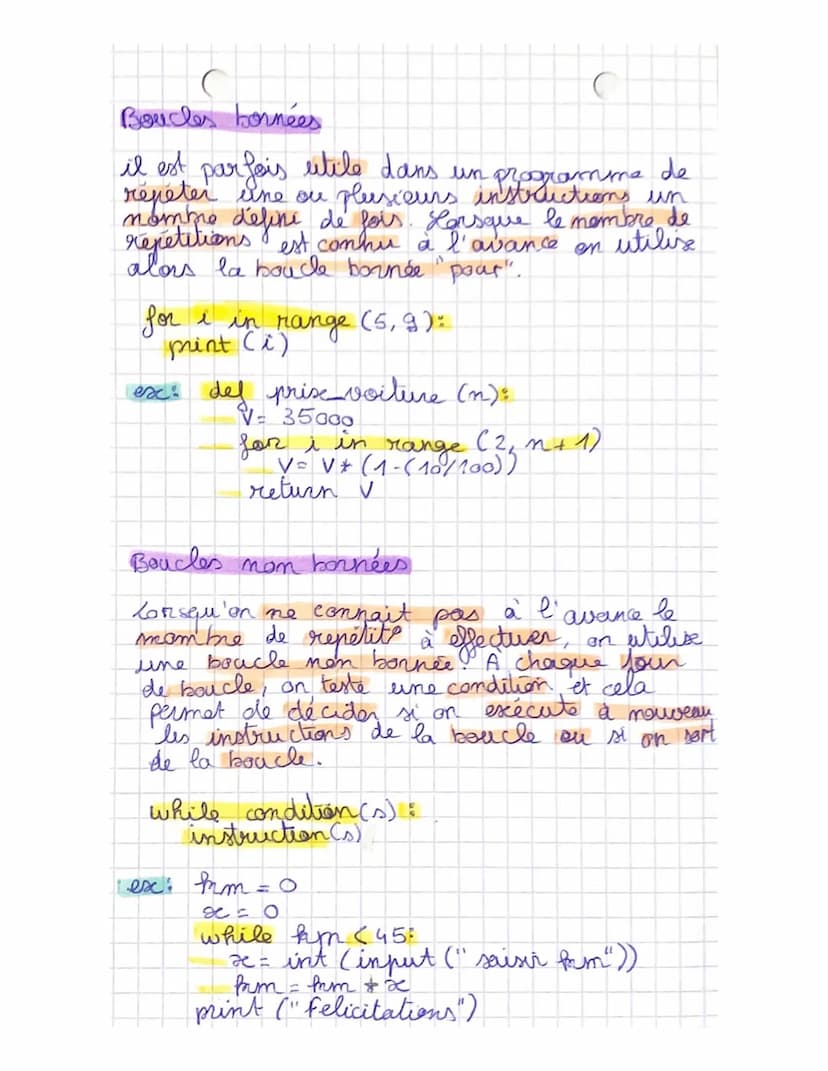 Boucles bornées
il est parfois utile dans un programme de
répéter une ou plusieurs instructions un
nombre défini de fois. Lorsque le nombre de
répétitions est connu à l'avance on utilise
alors la boucle bornée "pour".
for i in range (5, 9):
print (i)
ex: def prix_voiture (n):
V= 35000
for i in range (2, n+1)
V= V* (1-(10/100))
return V
Boucles non bornées
Lorsqu'on ne connait pas à l'avance le
nombre de repétit° à effectuer, on utilise
une boucle non bornée. À chaque tour
de boucle, on teste une condition et cela
permet de décider si on exécute à nouveau
les instructions de la boucle ou si on sort
de la boucle.
while condition(s) :
instruction(s)
ex: km = 0
x = 0
while km < 45:
x = int (input (" saisir km"))
km = km + x
print ("Felicitations")